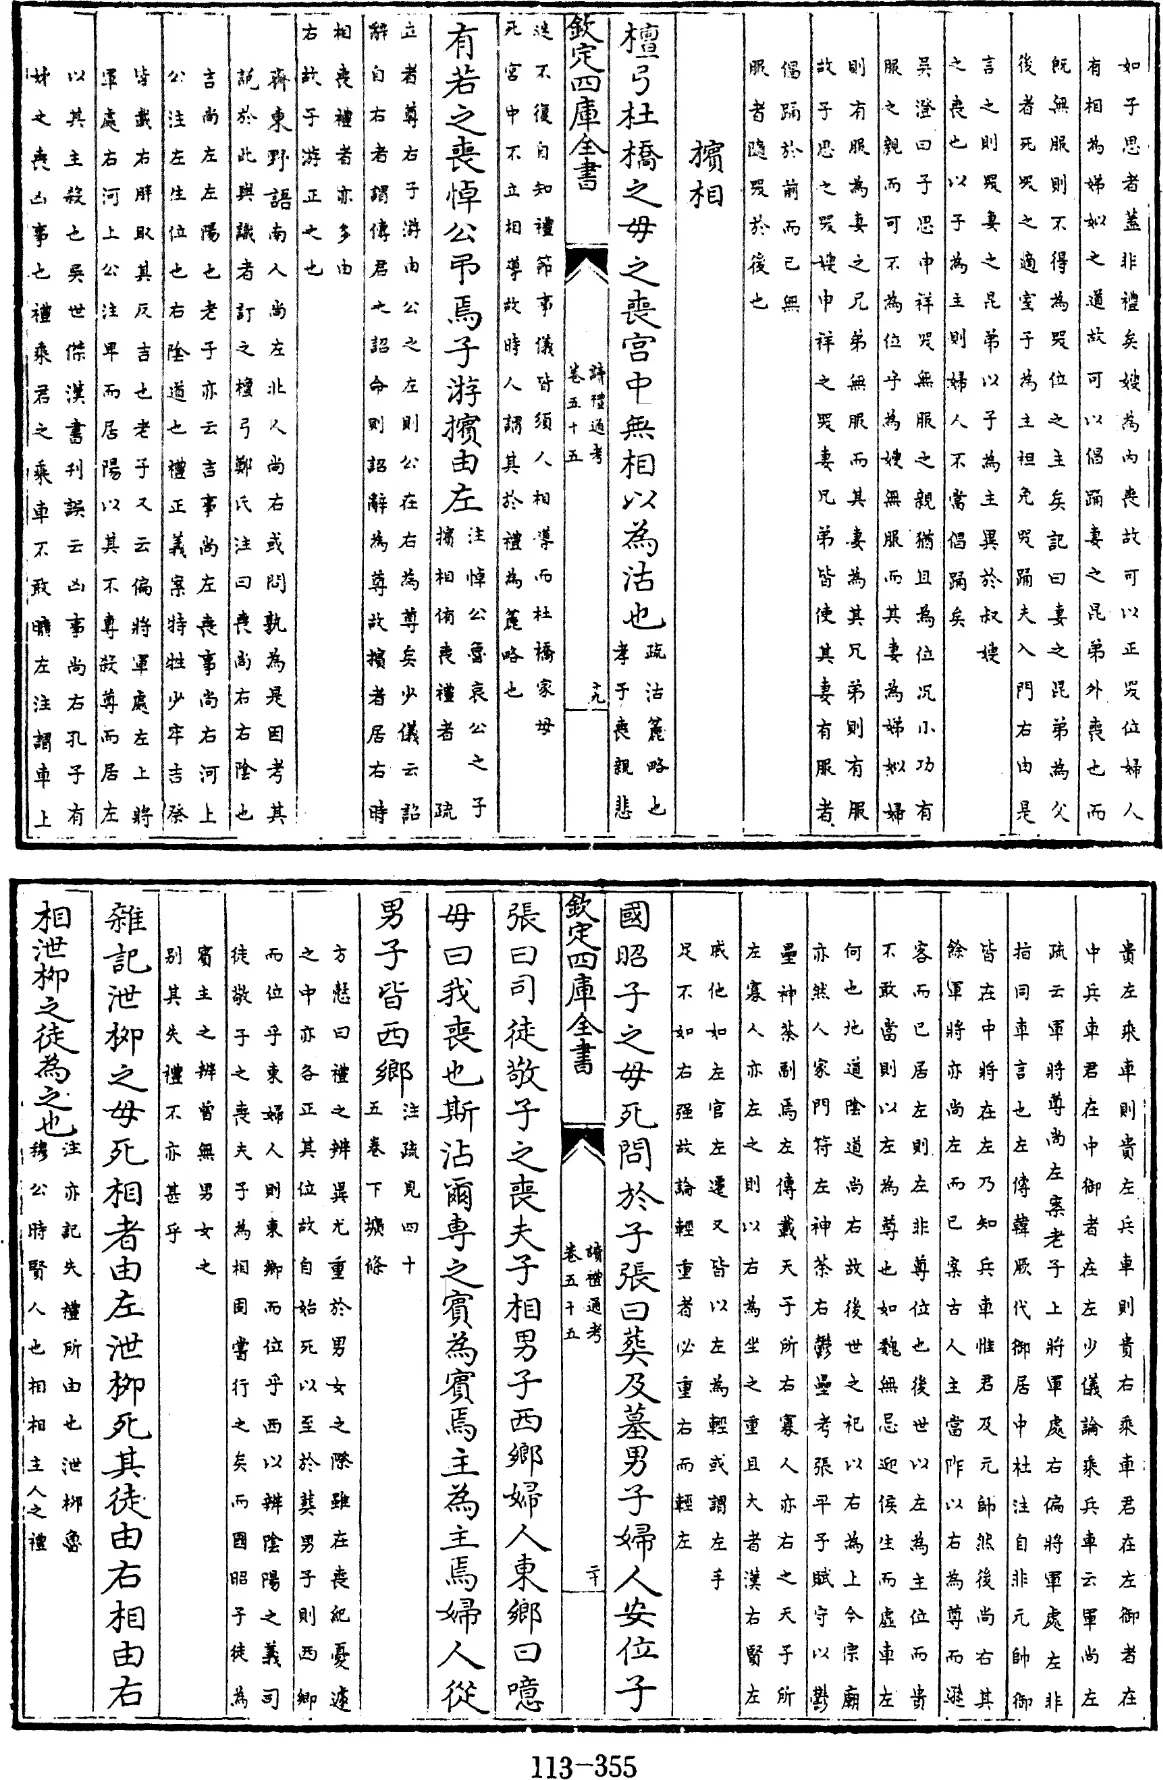 如子思者蓋非禮矣嫂為內喪故可以正哭位婦人
有相為娣姒之道故可以倡踊妻之昆弟外喪也而
既無服則不得為哭位之主矣記曰妻之昆弟為父
後者死哭之適室子為主袒免哭踊夫入門右由是
言之則哭妻之昆弟以子為主異於叔嫂
之喪也以子為主則婦人不當倡踊矣
吳澄曰子思申祥哭無服之親猶且為位況小功有
服之親而可不為位乎為嫂無服而其妻為娣姒婦
則有服為妻之兄弟無服而其妻為其兄弟則有服
故子思之哭嫂申祥之哭妻兄弟皆使其妻有服者
倡踊於前而己無
服者隨哭於後也
擯相
檀弓杜橋之母之喪宮中無相以為沽也
疏沽麄略也
孝子喪親悲
欽定四庫全書
讀禮通考
卷五十五
十九
迷不復自知禮節事儀皆須人相導而杜橋家母
死宮中不立相導故時人謂其於禮為麄略也
有若之喪悼公弔焉子游擯由左
注悼公魯哀公之子
擯相侑喪禮者 疏
立者尊右子游由公之左則公在右為尊矣少儀云詔
辭自右者謂傳君之詔命則詔辭為尊故擯者居右時
相喪禮者亦多由
右故子游正之也
齊東野語南人尚左北人尚右或問孰為是因考其
説於此與識者訂之檀弓鄭氏注曰喪尚右右陰也
吉尚左左陽也老子亦云吉事尚左喪事尚右河上
公注左生位也右陰道也禮正義案特牲少牢吉祭
皆載右胖取其反吉也老子又云偏將軍處左上將
軍處右河上公注卑而居陽以其不專殺尊而居左
以其主殺也吳世傑漢書刊誤云凶事尚右孔子有
姊之喪凶事也禮乘君之乘車不敢曠左注謂車上
貴左乘車則貴左兵車則貴右乘車君在左御者在
中兵車君在中御者在左少儀論乘兵車云軍尚左
疏云軍將尊尚左案老子上將軍處右偏將軍處左非
指同車言也左傳韓厥代御居中杜注自非元帥御
皆在中將在左乃知兵車惟君及元帥然後尚右其
餘軍將亦尚左而已案古人主當阼以右為尊而遜
客而已居左則左非尊位也後世以左為主位而貴
不敢當則以左為尊也如魏無忌迎侯生而虛車左
何也地道陰道尚右故後世之祀以右為上今宗廟
亦然人家門符左神荼右鬱壘考張平子賦守以鬱
壘神荼副焉左傳載天子所右寡人亦右之天子所
左寡人亦左之則以右為坐之重且大者漢右賢左
戚他如左官左遷又皆以左為輕或謂左手
足不如右强故論輕重者必重右而輕左
國昭子之母死問於子張曰葬及墓男子婦人安位子
欽定四庫全書
讀禮通考
卷五十五
二十
張曰司徒敬子之喪夫子相男子西鄉婦人東鄉曰噫
毋曰我喪也斯沾爾專之賓為賓焉主為主焉婦人從
男子皆西鄉
注疏見四十
五卷下壙條
方慤曰禮之辨異尤重於男女之際雖在喪紀憂遽
之中亦各正其位故自始死以至於葬男子則西鄉
而位乎東婦人則東鄉而位乎西以辨陰陽之義司
徒敬子之喪夫子為相固嘗行之矣而國昭子徒為
賓主之辨曾無男女之
別其失禮不亦甚乎
雜記泄柳之母死相者由左泄柳死其徒由右相由右
相泄柳之徒為之也
注亦記失禮所由也泄柳魯
穆公時賢人也相相主人之禮
113-355